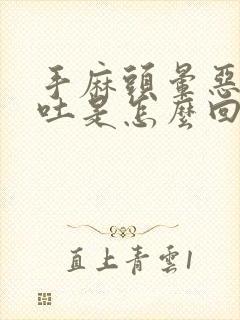 手麻頭暈惡
吐是怎麼回
直上青雲1